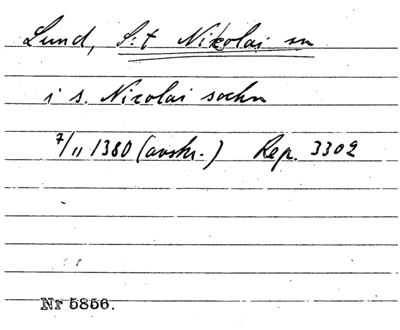 Lund, S:t Nikolai sn
i s. Nicolai sochn
7/11 1380 (avskr.) Rep. 3302
Nr 5856.